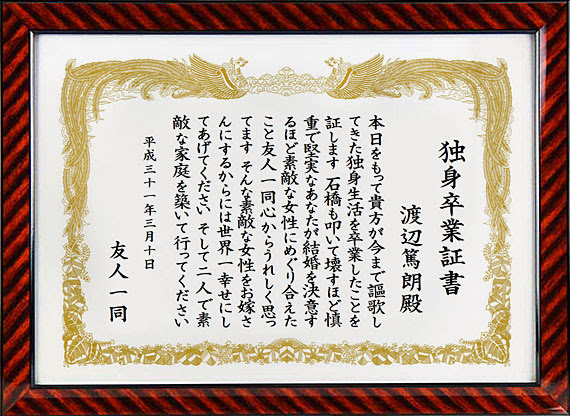 独身卒業証書
渡辺篤朗殿
本日をもって貴方が今まで謳歌し
てきた独身生活を卒業したことを
証します 石橋も叩いて壊すほど慎
重で堅実なあなたが結婚を決意す
るほど素敵な女性にめぐり合えた
こと友人一同心からうれしく思っ
てます そんな素敵な女性をお嫁さ
んにするからには世界一幸せにし
てあげてください そして二人で素
敵な家庭を築いて行ってください
平成三十一年三月十日
友人一同